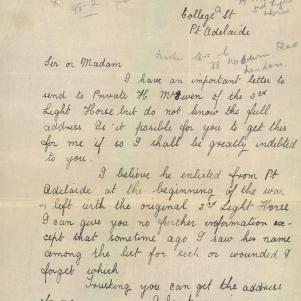 95-2
College St
Pt Adelaide
3rd Light
Horse
38
London
Sir or Madam
I have an important letter to
send to Private H. McEwen of the 3rd
Light Horse but do not know the full
address. Is it posible for you to get this
for me if so I shall be greatly indebted
to you.
I believe he enlisted from Pt
Adelaide at the beginning of the war
left with the original 3rd Light Horse
I can give you no further information ex-
cept that sometime ago I saw his name
among the list for sick or wounded I
forget which.
Trusting you can get the address